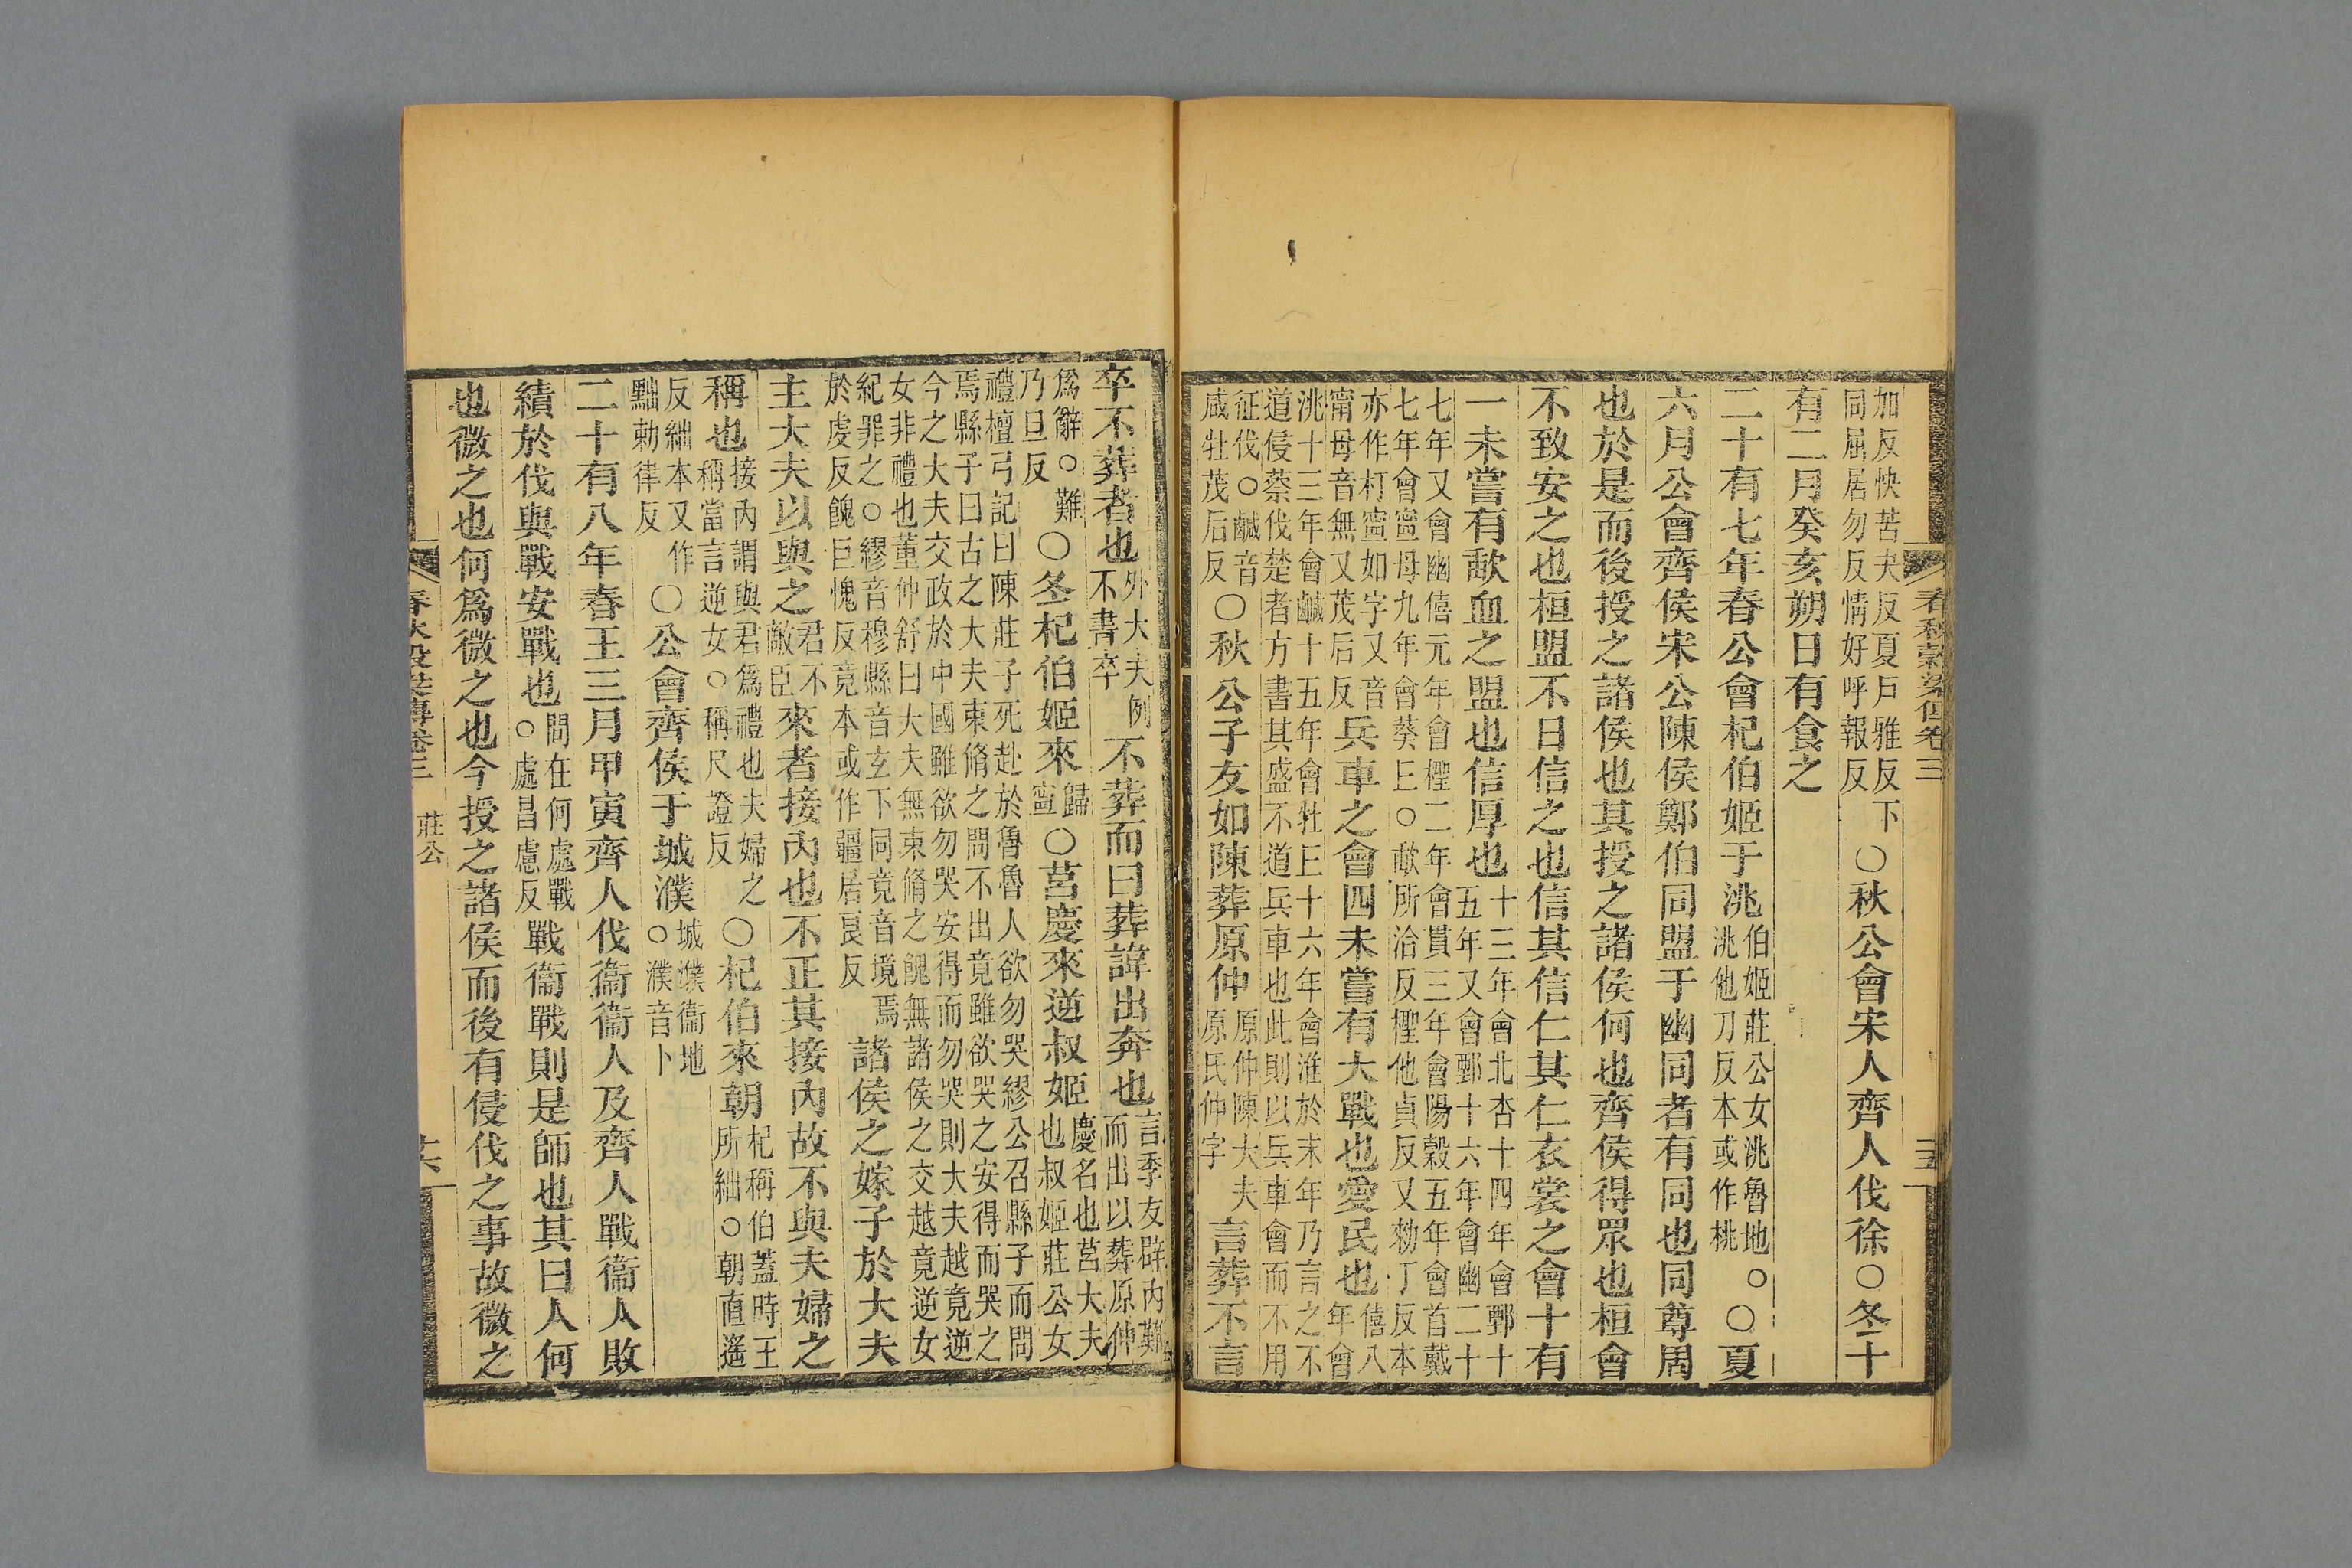 春秋穀梁傳卷三
加反怏苦夬反夏戸雅反下
同屈居勿反情好呼報反
○秋公會宋人齊人伐徐○冬十
有二月癸亥朔日有食之
二十有七年春公會杞伯姬于洮
伯姬莊公女洮魯地○
洮他刀反本或作桃
○夏
六月公會齊侯宋公陳侯鄭伯同盟于幽同者有同也同尊周
也於是而後授之諸侯也其授之諸侯何也齊侯得眾也桓會
不致安之也桓盟不日信之也信其信仁其仁衣裳之會十有
一未嘗有歃血之盟也信厚也
十三年會北杏十四年會鄄十
五年又會鄄十六年會幽二十
七年又會幽僖元年會檉二年會貫三年會陽穀五年會首戴
七年會甯母九年會葵丘○歃所洽反檉他貞反又勑丁反本
亦作朾甯如字又音
甯母音無又茂后反
兵車之會四未嘗有大戰也愛民也
僖八
年會
洮十三年會鹹十五年會牡丘十六年會淮於末年乃言之不
道侵蔡伐楚者方書其盛不道兵車也此則以兵車會而不用
征伐○鹹音
咸牡茂后反
○秋公子友如陳葬原仲
原仲陳大夫
原氏仲字
言葬不言
卒不葬者也
外大夫例
不書卒
不葬而曰葬諱出奔也
言季友辟内難
而出以葬原仲
爲辭○難
乃旦反
○冬杞伯姬來
歸
寧
○莒慶來逆叔姬
慶名也莒大夫
也叔姬莊公女
禮檀弓記曰陳莊子死赴於魯魯人欲勿哭繆公召縣子而問
焉縣子曰古之大夫束脩之問不出竟雖欲哭之安得而哭之
今之大夫交政於中國雖欲勿哭安得而勿哭則大夫越竟逆
女非禮也董仲舒曰大夫無束脩之餽無諸侯之交越竟逆女
紀罪之○繆音穆縣音玄下同竟音境焉
於虔反餽巨愧反竟本或作疆居良反
諸侯之嫁子於大夫
主大夫以與之
君不
敵臣
來者接内也不正其接内故不與夫婦之
稱也
接内謂與君爲禮也夫婦之
稱當言逆女○稱尺證反
○杞伯來朝
杞稱伯蓋時王
所絀○朝直遙
反絀本又作
黜勅律反
○公會齊侯于城濮
城濮衞地
○濮音卜
二十有八年春王三月甲寅齊人伐衞衞人及齊人戰衞人敗
績於伐與戰安戰也
問在何處戰
○處昌慮反
戰衞戰則是師也其曰人何
也微之也何爲微之也今授之諸侯而後有侵伐之事故微之
春秋穀梁傳卷三
莊公